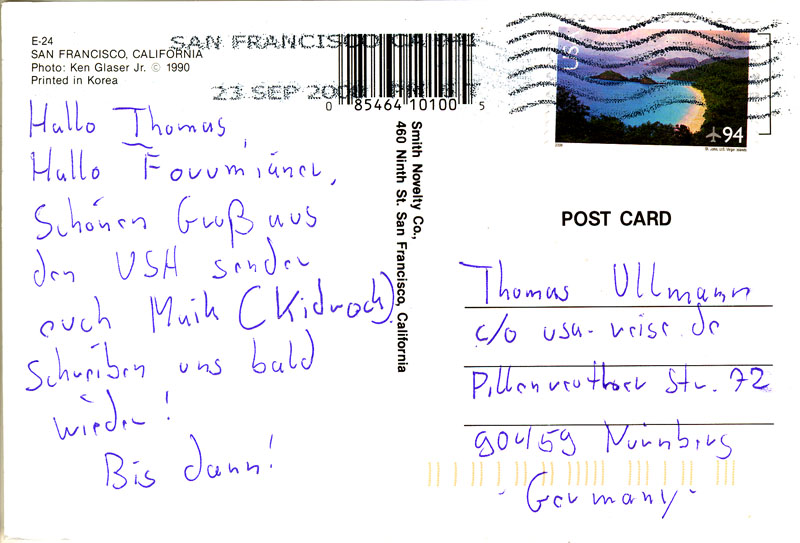 E-24
SAN FRANCISCO, CALIFORNIA
Photo: Ken Glaser Jr. © 1990
Printed in Korea
SAN FRANCISCO CA
23 SEP
0 85464 10100 5
Smith Novelty Co.,
460 Ninth St. San Francisco, California
USA
94
Hallo Thomas,
Hallo Forumianer,
Schönen Gruß aus
den USA sendet
euch Maik (Kidrock).
Schreiben uns bald
wieder!
Bis dann!
POST CARD
Thomas Ullmann
c/o usa-reise.de
Pillenreuther Str. 72
90459 Nürnberg
- Germany -